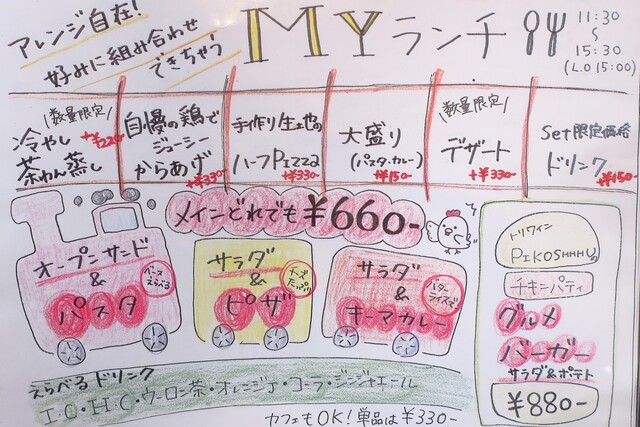 アレンジ自在!
好みに組み合わせ
できちゃう
MYランチ
11:30
~
15:30
(L.O 15:00)
数量限定
冷やし
茶わん蒸し
+¥220-
自慢の鶏で
ジューシー
からあげ
+¥330-
手作り生地の
ハーフPIZZA
+¥330-
大盛り
(パスタ・カレー)
+¥150-
数量限定
デザート
+¥330-
Set限定価格
ドリンク
+¥150-
メインどれでも¥660-
オープンサンド
&
パスタ
ソースえらべる
サラダ
&
ピザ
チーズたっぷり
サラダ
&
キーマカレー
バターライスで
トリワイン
PIKOSHHHU。
チキンパティ
グルメ
バーガー
サラダ&ポテト
¥880-
えらべるドリンク
I.C・H.C・ウーロン茶・オレンジJ・コーラ・ジンジャエール
カフェもOK!単品は¥330-